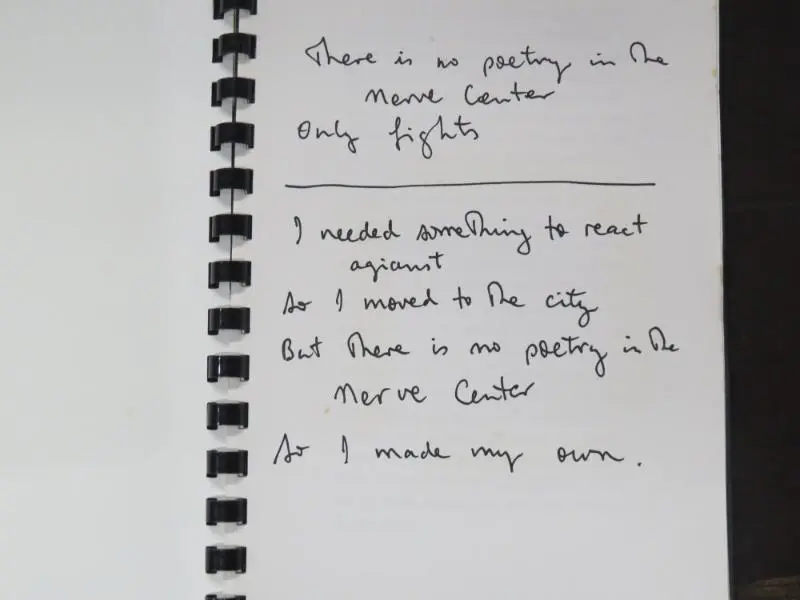 There is no poetry in the
nerve center
Only fights
I needed something to react
agianst
So I moved to the city
But there is no poetry in the
nerve center
So I made my own.